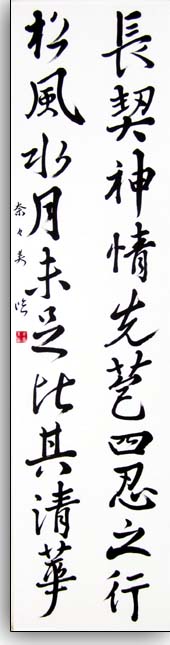 長契神情先苞四忍之行
松風水月未足比其清華
奈々美臨